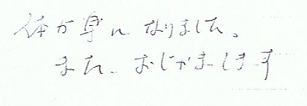 体が楽になりました。
また、おじゃまします